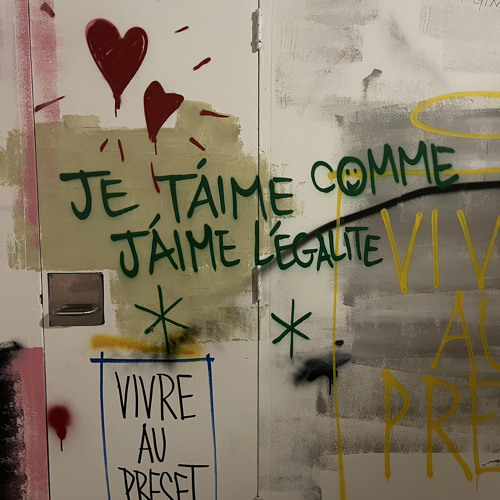 JE T'ÁIME COMME
J'ÁIME L'ÉGALITE
VIVRE
AU
PRESET
VIV
AU
PRE